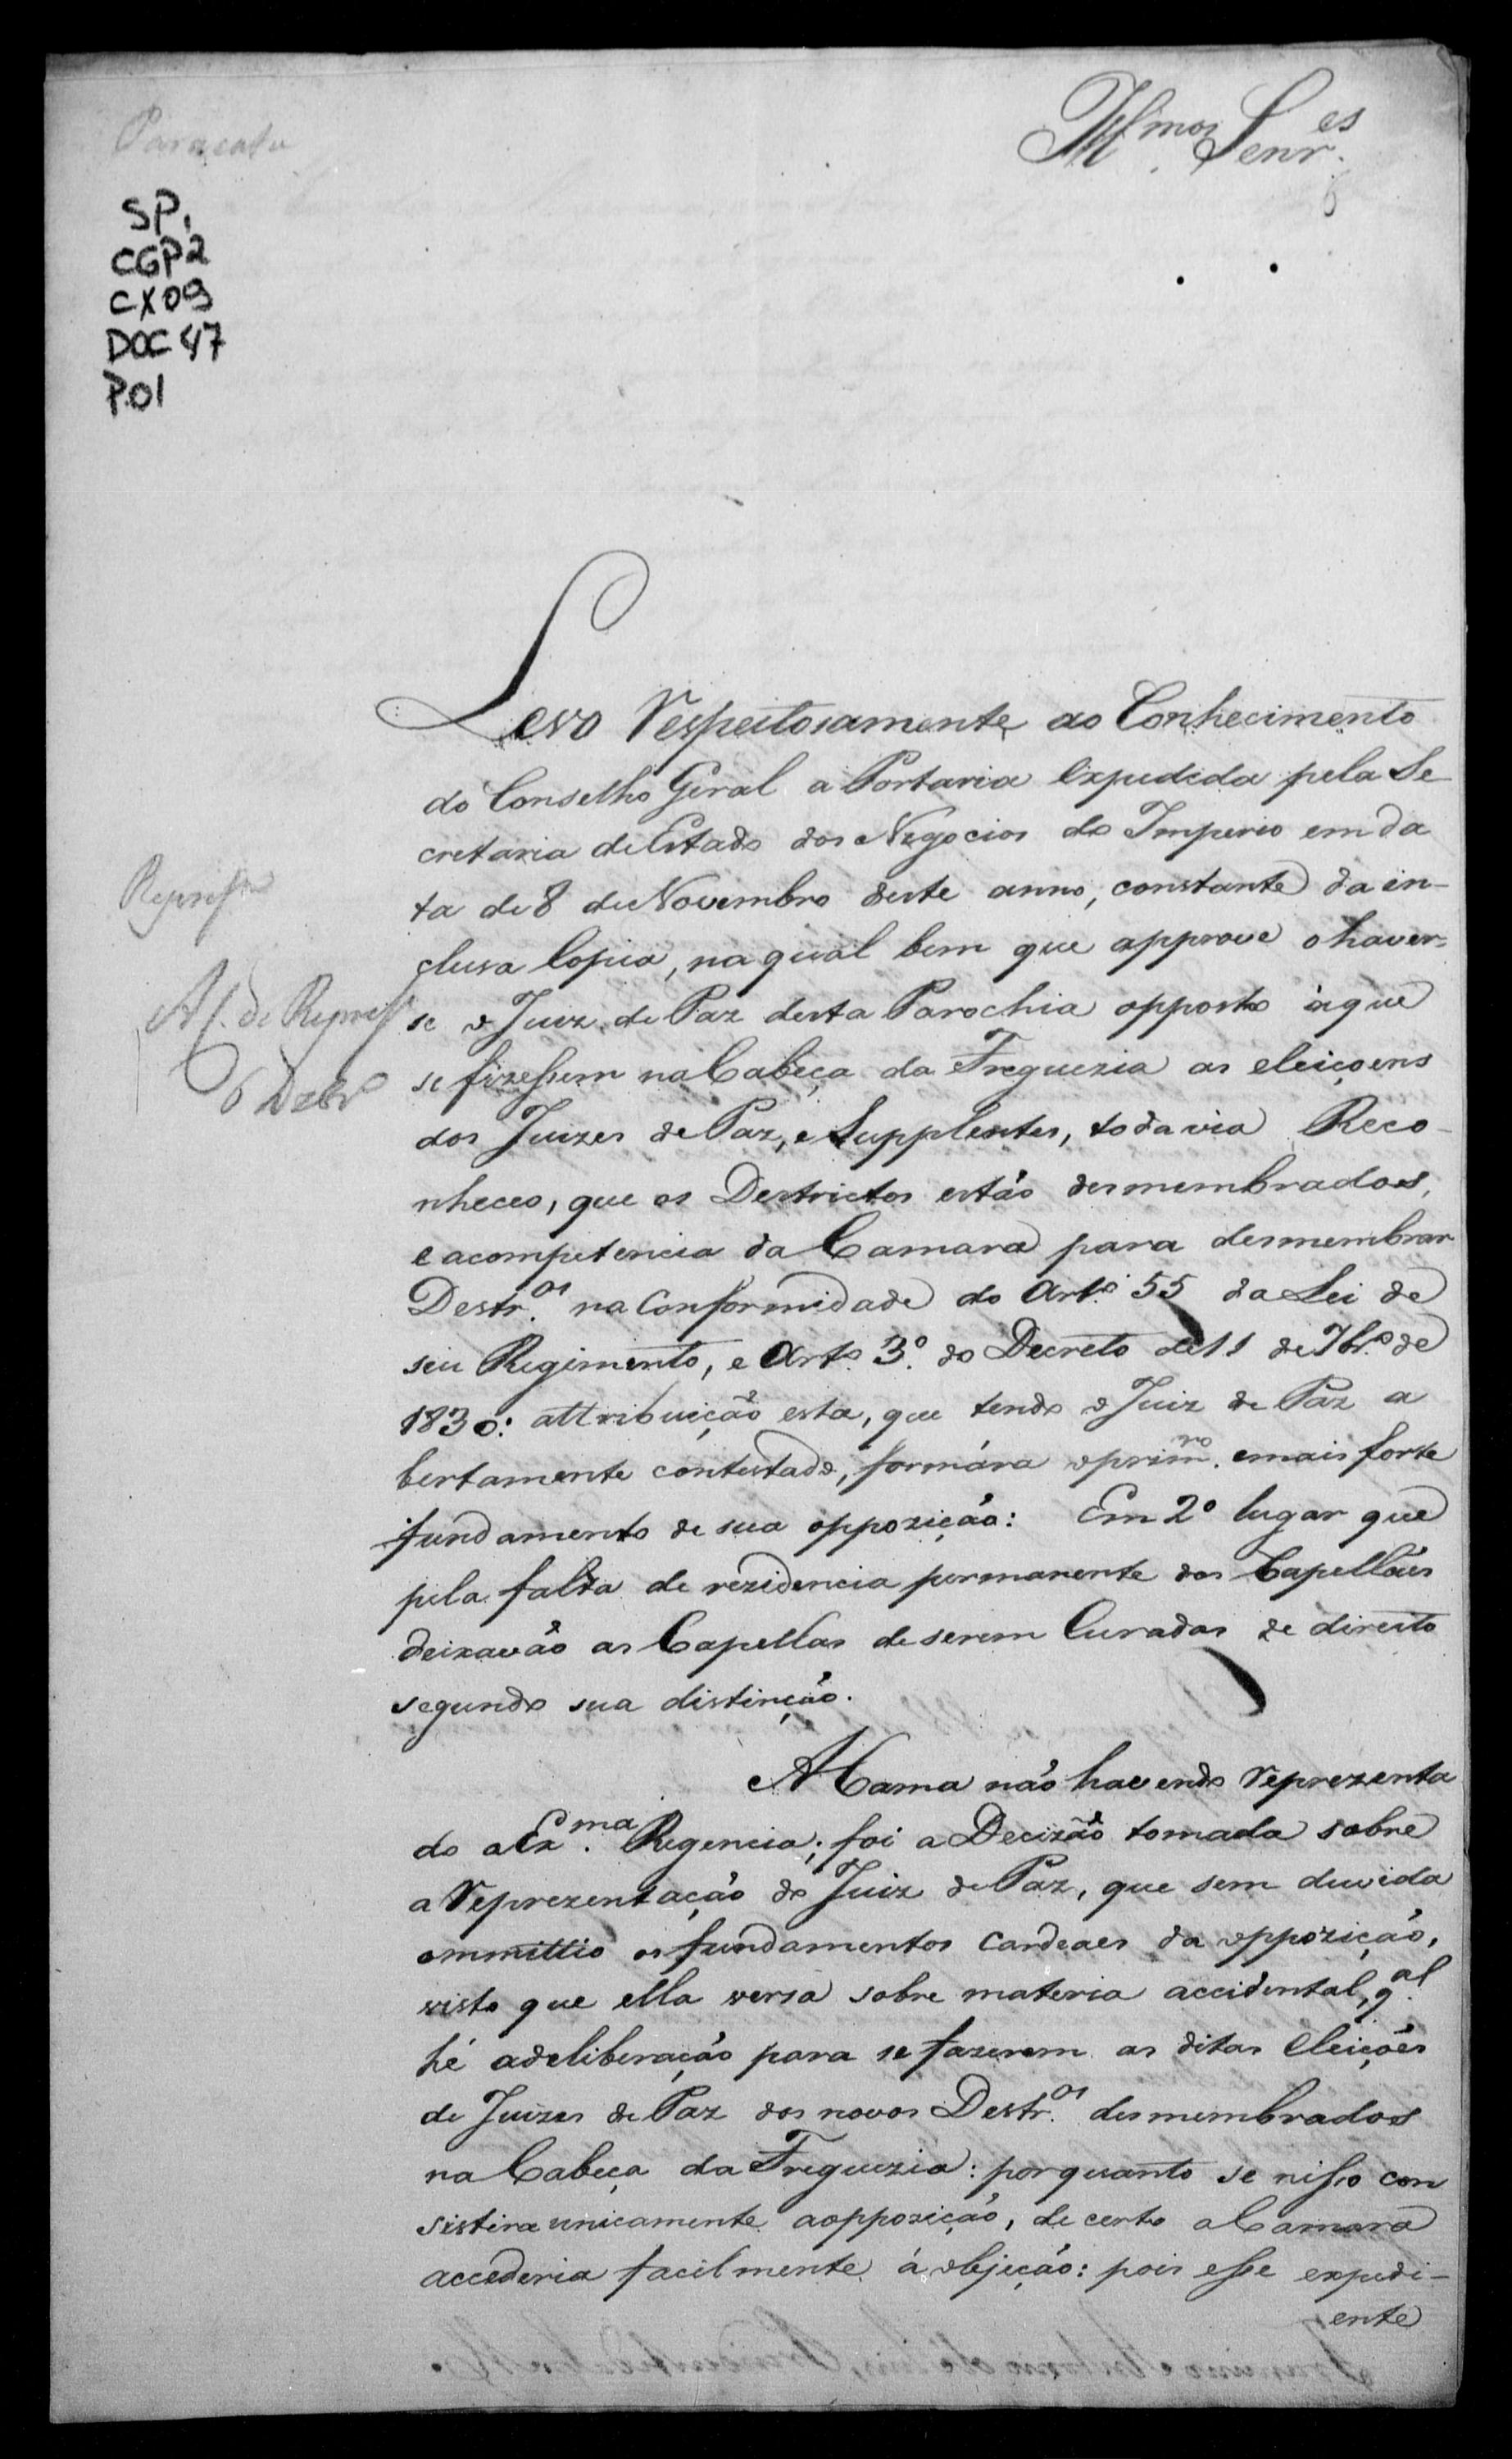 Paracatu
Illmos. Senres.
SP,
CGP2
CX09
DOC 47
P.01
Levo Respeitosamente ao Conhecimento
do Conselho Geral a Portaria Expedida pela Se
cretaria de Estado dos Negocios do Imperio em da
ta de 8 de Novembro deste anno, constante da in-
clusa Copia, na qual bem que approve o haver-
se o Juiz de Paz desta Parochia opposto á que
se fizessem na Cabeça da Freguezia as eleiçoens
dos Juizes de Paz, e Supplentes, todavia Reco-
nheceo, que os Destrictos estão desmembrados,
e a competencia da Camara para desmembrar
Destr.os na Conformidade do Arto. 55 da Lei de
seu Regimento, e Arto. 3º. do Decreto de 11 de 7br.o de
1830: attribuição esta, que tendo o Juiz de Paz a
bertamente contestado, formára o prim.ro e mais forte
fundamento de sua oppozição: Em 2º lugar que
pela falta de rezidencia permanente dos Capellães
deixavão as Capellas de serem Curadas de direito
segundo sua distinção.
A Cama não havendo Reprezenta
do a Ex.ma Regencia; foi a Decizão tomada sobre
a Reprezentação do Juiz de Paz, que sem duvida
ommittio os fundamentos Cardeaes da oppozição,
visto que ella versa sobre materia accidental, q.al
hé a deliberação para se fazerem as ditas Eleições
de Juizes de Paz dos novos Destr.os desmembrados
na Cabeça da Freguezia: porquanto se nisso con
sistira unicamente a oppozição, de certo a Camara
accederia facilmente á objeção: pois esse expedi-
ente
Represam
A C. de Repres
6 Dezbro